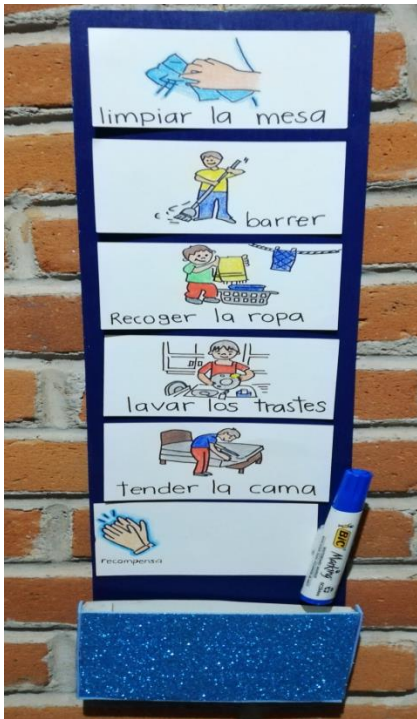 limpiar la mesa
barrer
Recoger la ropa
lavar los trastes
tender la cama
recompensa
BIC
Marking